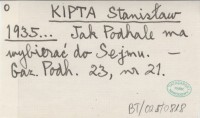 0
KIPTA Stanisław
1935... Jak Podhale ma
wybierać do Sejmu. –
Gaz. Podh. 23, nr 21.
BJ/021/0818